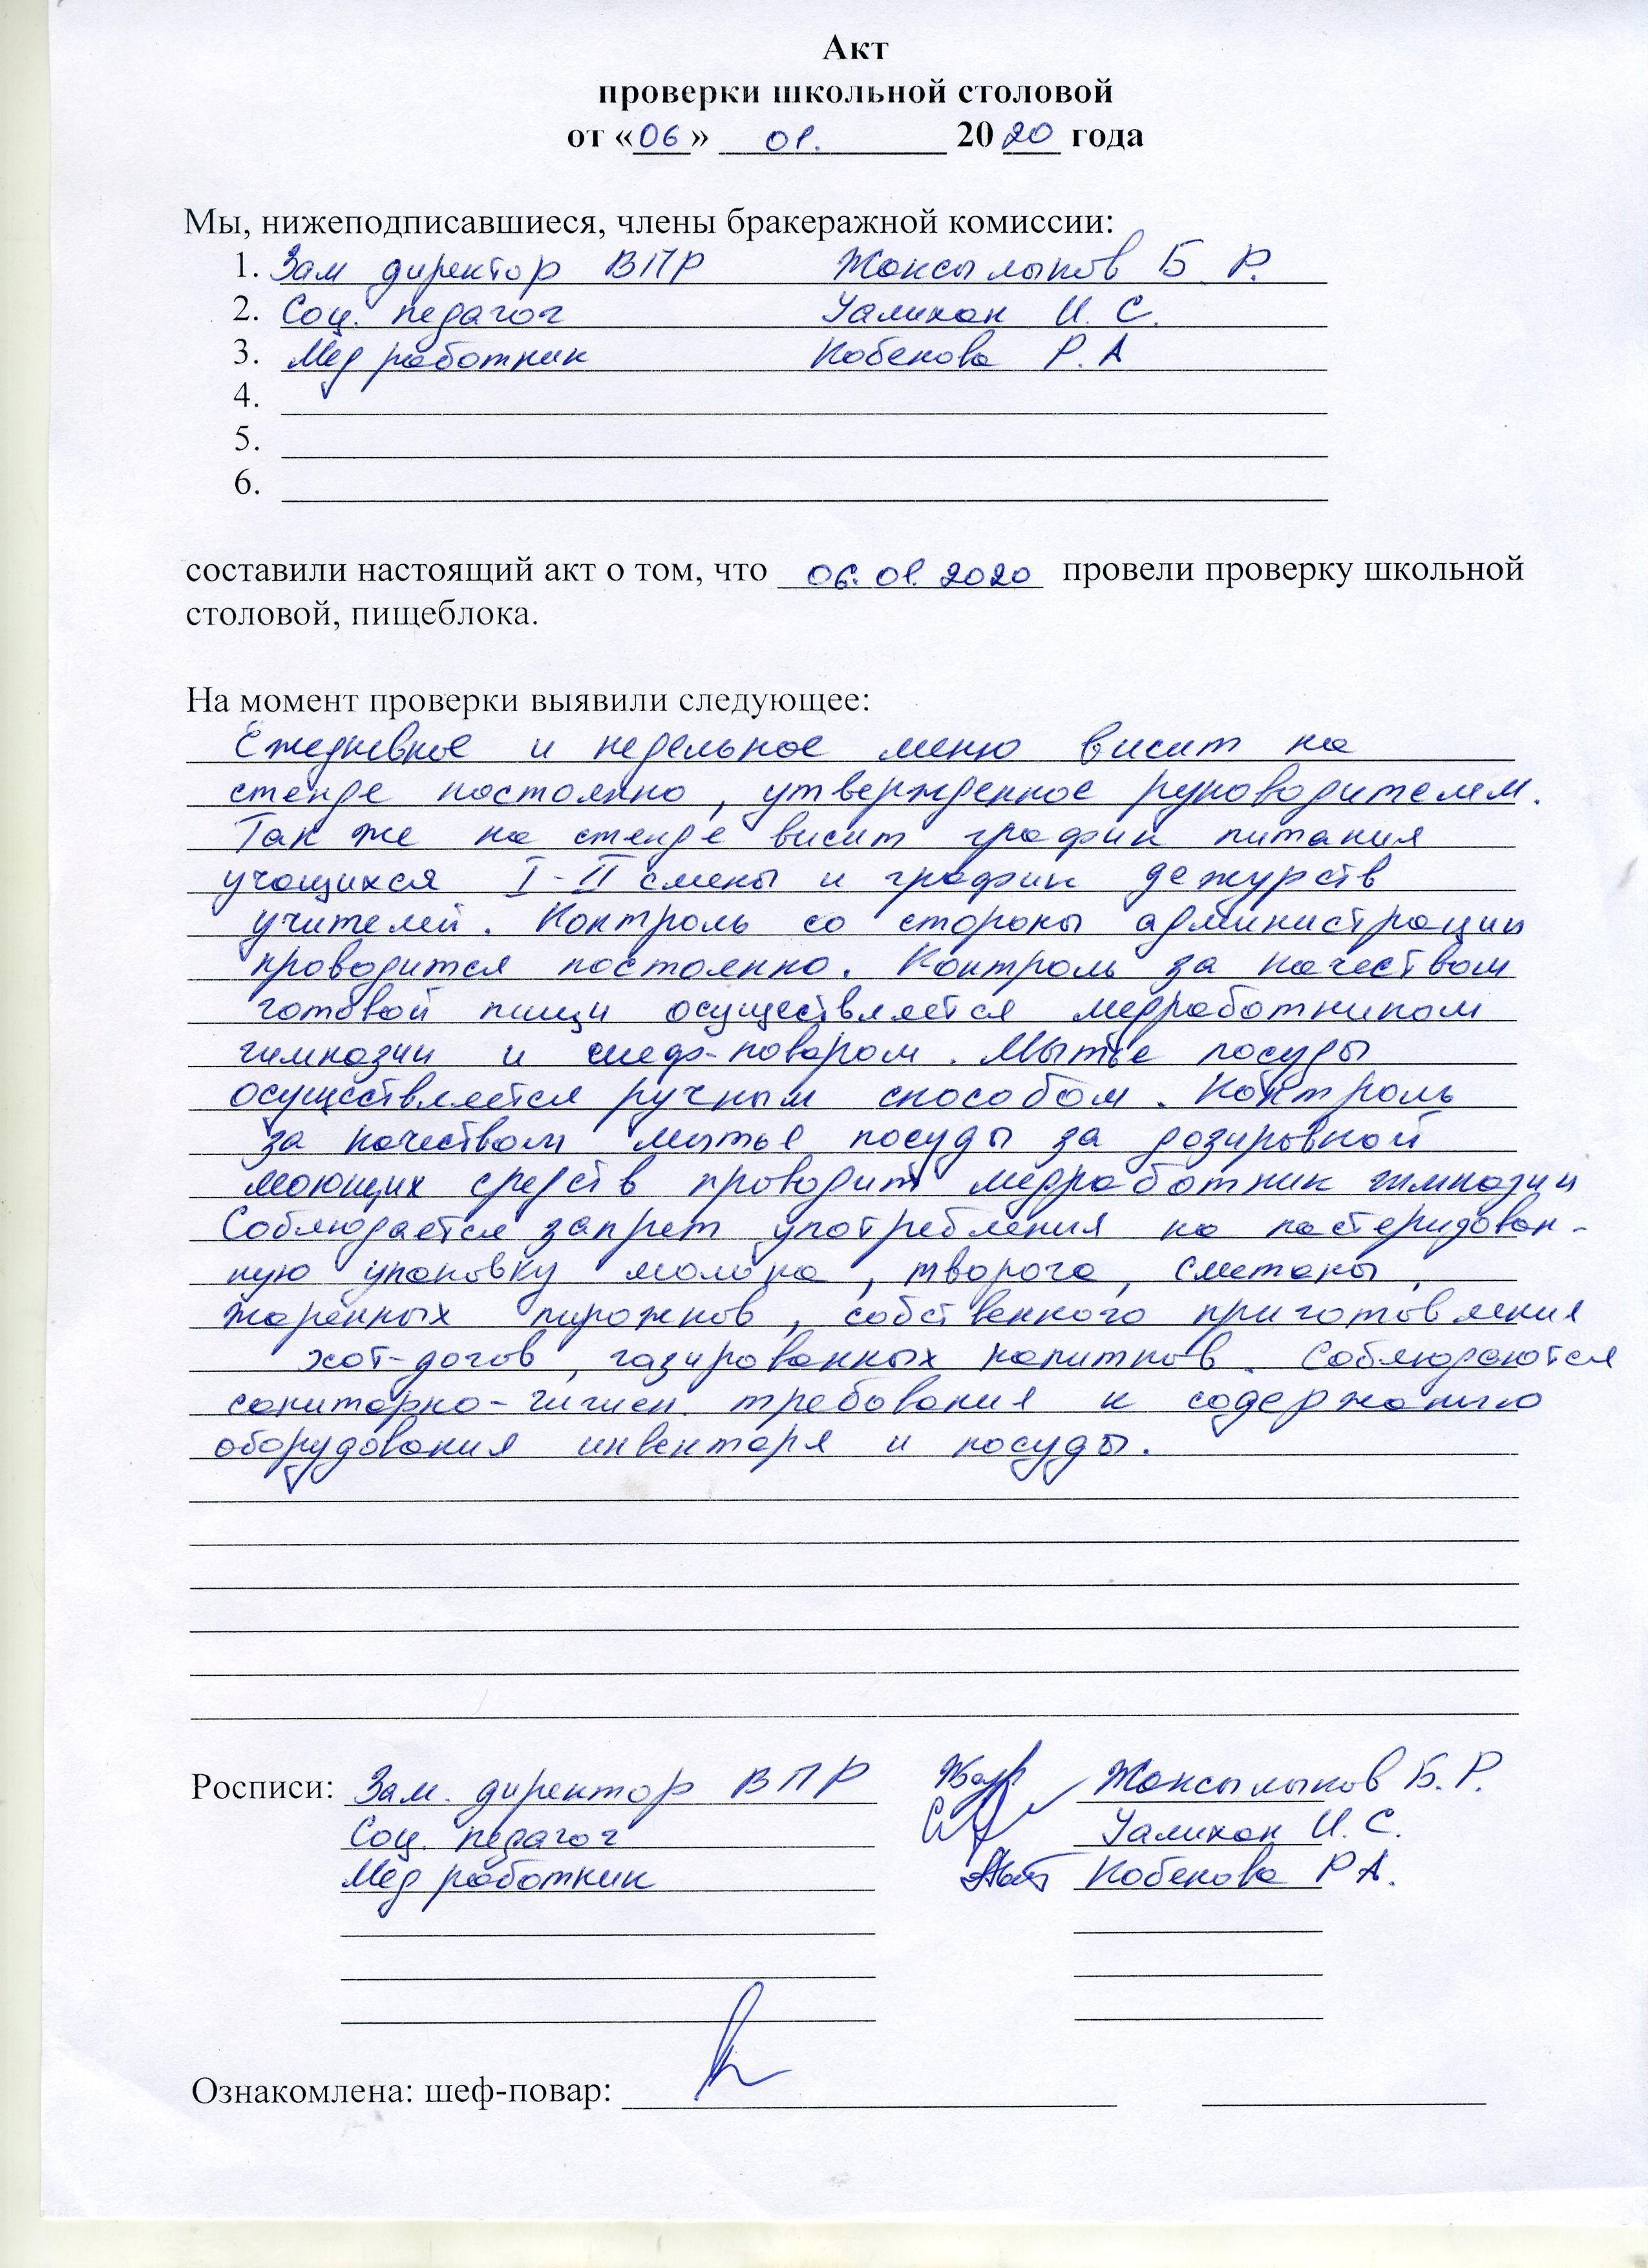 Акт
проверки школьной столовой
от «06» 01. 2020 года
Мы, нижеподписавшиеся, члены бракеражной комиссии:
1. Зам директор ВПР Жаксылыков Б Р.
2. Соц. педагог Уалихан И. С.
3. Мед работник Кабекова Р. А
4.
5.
6.
составили настоящий акт о том, что 06.01.2020 провели проверку школьной
столовой, пищеблока.
На момент проверки выявили следующее:
Ежедневное и недельное меню висит на
стенде постоянно, утвержденное руководителем.
Так же на стенде висит график питания
учащихся I-II смены и график дежурств
учителей. Контроль со стороны администрации
проводится постоянно. Контроль за качеством
готовой пищи осуществляется медработником
гимназии и шеф-поваром. Мытье посуды
осуществляется ручным способом. Контроль
за качеством мытье посуды за дозировкой
моющих средств проводит медработник гимназии
Соблюдается запрет употребления на пастеризован-
ную упаковку молока, творога, сметаны,
жаренных пирожков, собственного приготовления
хот-догов, газированных напитков. Соблюдаются
санитарно-гигиен. требования к содержанию
оборудования инвентаря и посуды.
Росписи: Зам. директор ВПР Жаксылыков Б. Р.
Соц. педагог Уалихан И. С.
Мед работник Кабекова Р А.
Ознакомлена: шеф-повар: